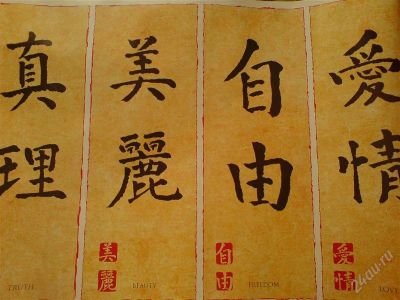 真理
TRUTH
美麗
美麗
BEAUTY
自由
自由
FREEDOM
愛情
愛情
LOVE
24au.ru